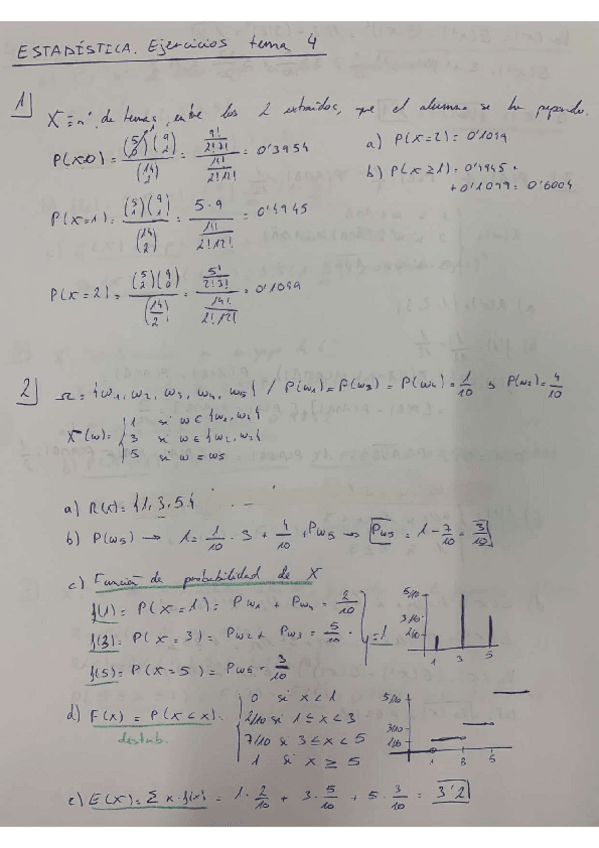 ESTADÍSTICA. Ejercicios tema 4
1) X = nº de temas, entre los 2 extraídos, que el alumno se ha preparado.
P(X=0) = (5 0)(9 2) / (14 2) = 9!/2!7! / 14!/2!12! = 0'3954
a) P(X=2) = 0'1099
b) P(X≥1) = 0'4945 +
+ 0'1099 = 0'6004
P(X=1) = (5 1)(9 1) / (14 2) = 5·9 / 14!/2!12! = 0'4945
P(X=2) = (5 2)(9 0) / (14 2) = 5!/2!3! / 14!/2!12! = 0'1099
2) Ω = {w1, w2, w3, w4, w5} / P(w1) = P(w3) = P(w4) = 1/10 ; P(w2) = 4/10
X(w) = { 1 si w ∈ {w1, w4}
3 si w ∈ {w2, w3}
5 si w = w5
a) R(x) = {1, 3, 5}
b) P(w5) → 1 = 1/10 · 3 + 4/10 + Pw5 → Pw5 = 1 - 7/10 = 3/10
c) Función de probabilidad de X
f(1) = P(X=1) = Pw1 + Pw4 = 2/10
f(3) = P(X=3) = Pw2 + Pw3 = 5/10 = 1
f(5) = P(X=5) = Pw5 = 3/10
5/10
3/10
2/10
1 3 5
d) F(x) = P(X≤x) = { 0 si x < 1
distrib. 2/10 si 1 ≤ x < 3
7/10 si 3 ≤ x < 5
1 si x ≥ 5
5/10
3/10
2/10
1 3 5
e) E(X) = Σ x·f(x) = 1 · 2/10 + 3 · 5/10 + 5 · 3/10 = 3'2